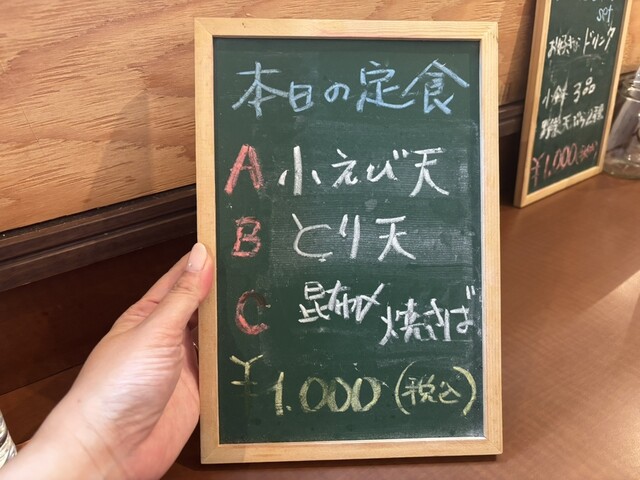 本日の定食
A 小えび天
B とり天
C 昆布〆焼さば
¥1.000(税込)
set
お好きなドリンク
小鉢 3品
¥1,000(税込)